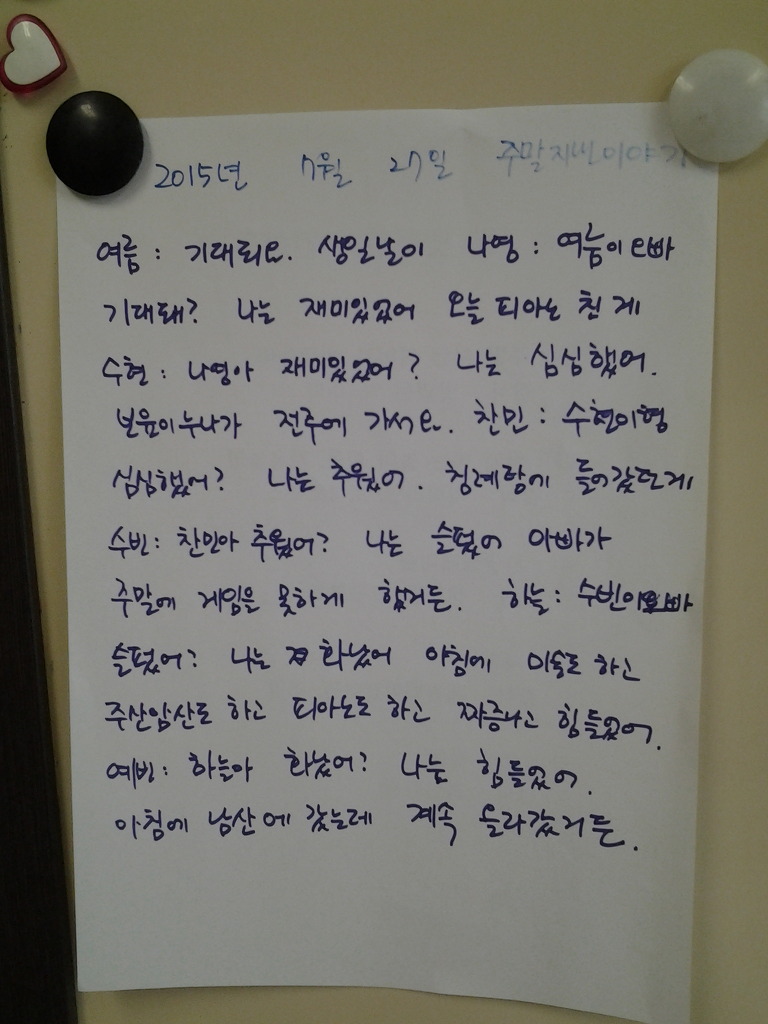 2015년 7월 27일 주말지낸이야기
여름 : 기대되요. 생일날이 나영 : 여름이오빠
기대돼? 나는 재미있었어 오늘 피아노 친 게
수현 : 나영아 재미있었어? 나는 심심했어.
보윤이누나가 전주에 가서요. 찬민 : 수현이형
심심했어? 나는 추웠어. 침례탕에 들어갔던게
수빈 : 찬민아 추웠어? 나는 슬펐어 아빠가
주말에 게임을 못하게 했거든. 하늘 : 수빈이오빠
슬펐어? 나는 화났어 아침에 미술도 하고
주산암산도 하고 피아노도 하고 짜증나고 힘들었어.
예빈 : 하늘아 화났어? 나는 힘들었어.
아침에 남산에 갔는데 계속 올라갔거든.